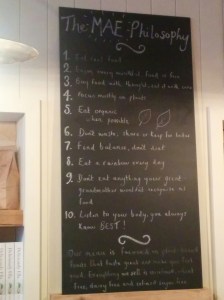 The MAE Philosophy
1. Eat real food
2. Enjoy every mouthful food is
3. Buy food with thought, eat it with
4. Focus mostly on plants
5. Eat organic
where possible
6. Don't waste, share or keep for later
7. Find balance, don't diet
8. Eat a rainbow every day
9. Don't eat anything your great
grandmother wouldn't recognise as
food
10. Listen to your body, you always
know BEST!
Our menu is focused on plant-based
foods that taste great and
and. Everything we sell is
free, dairy free and refined sugar free